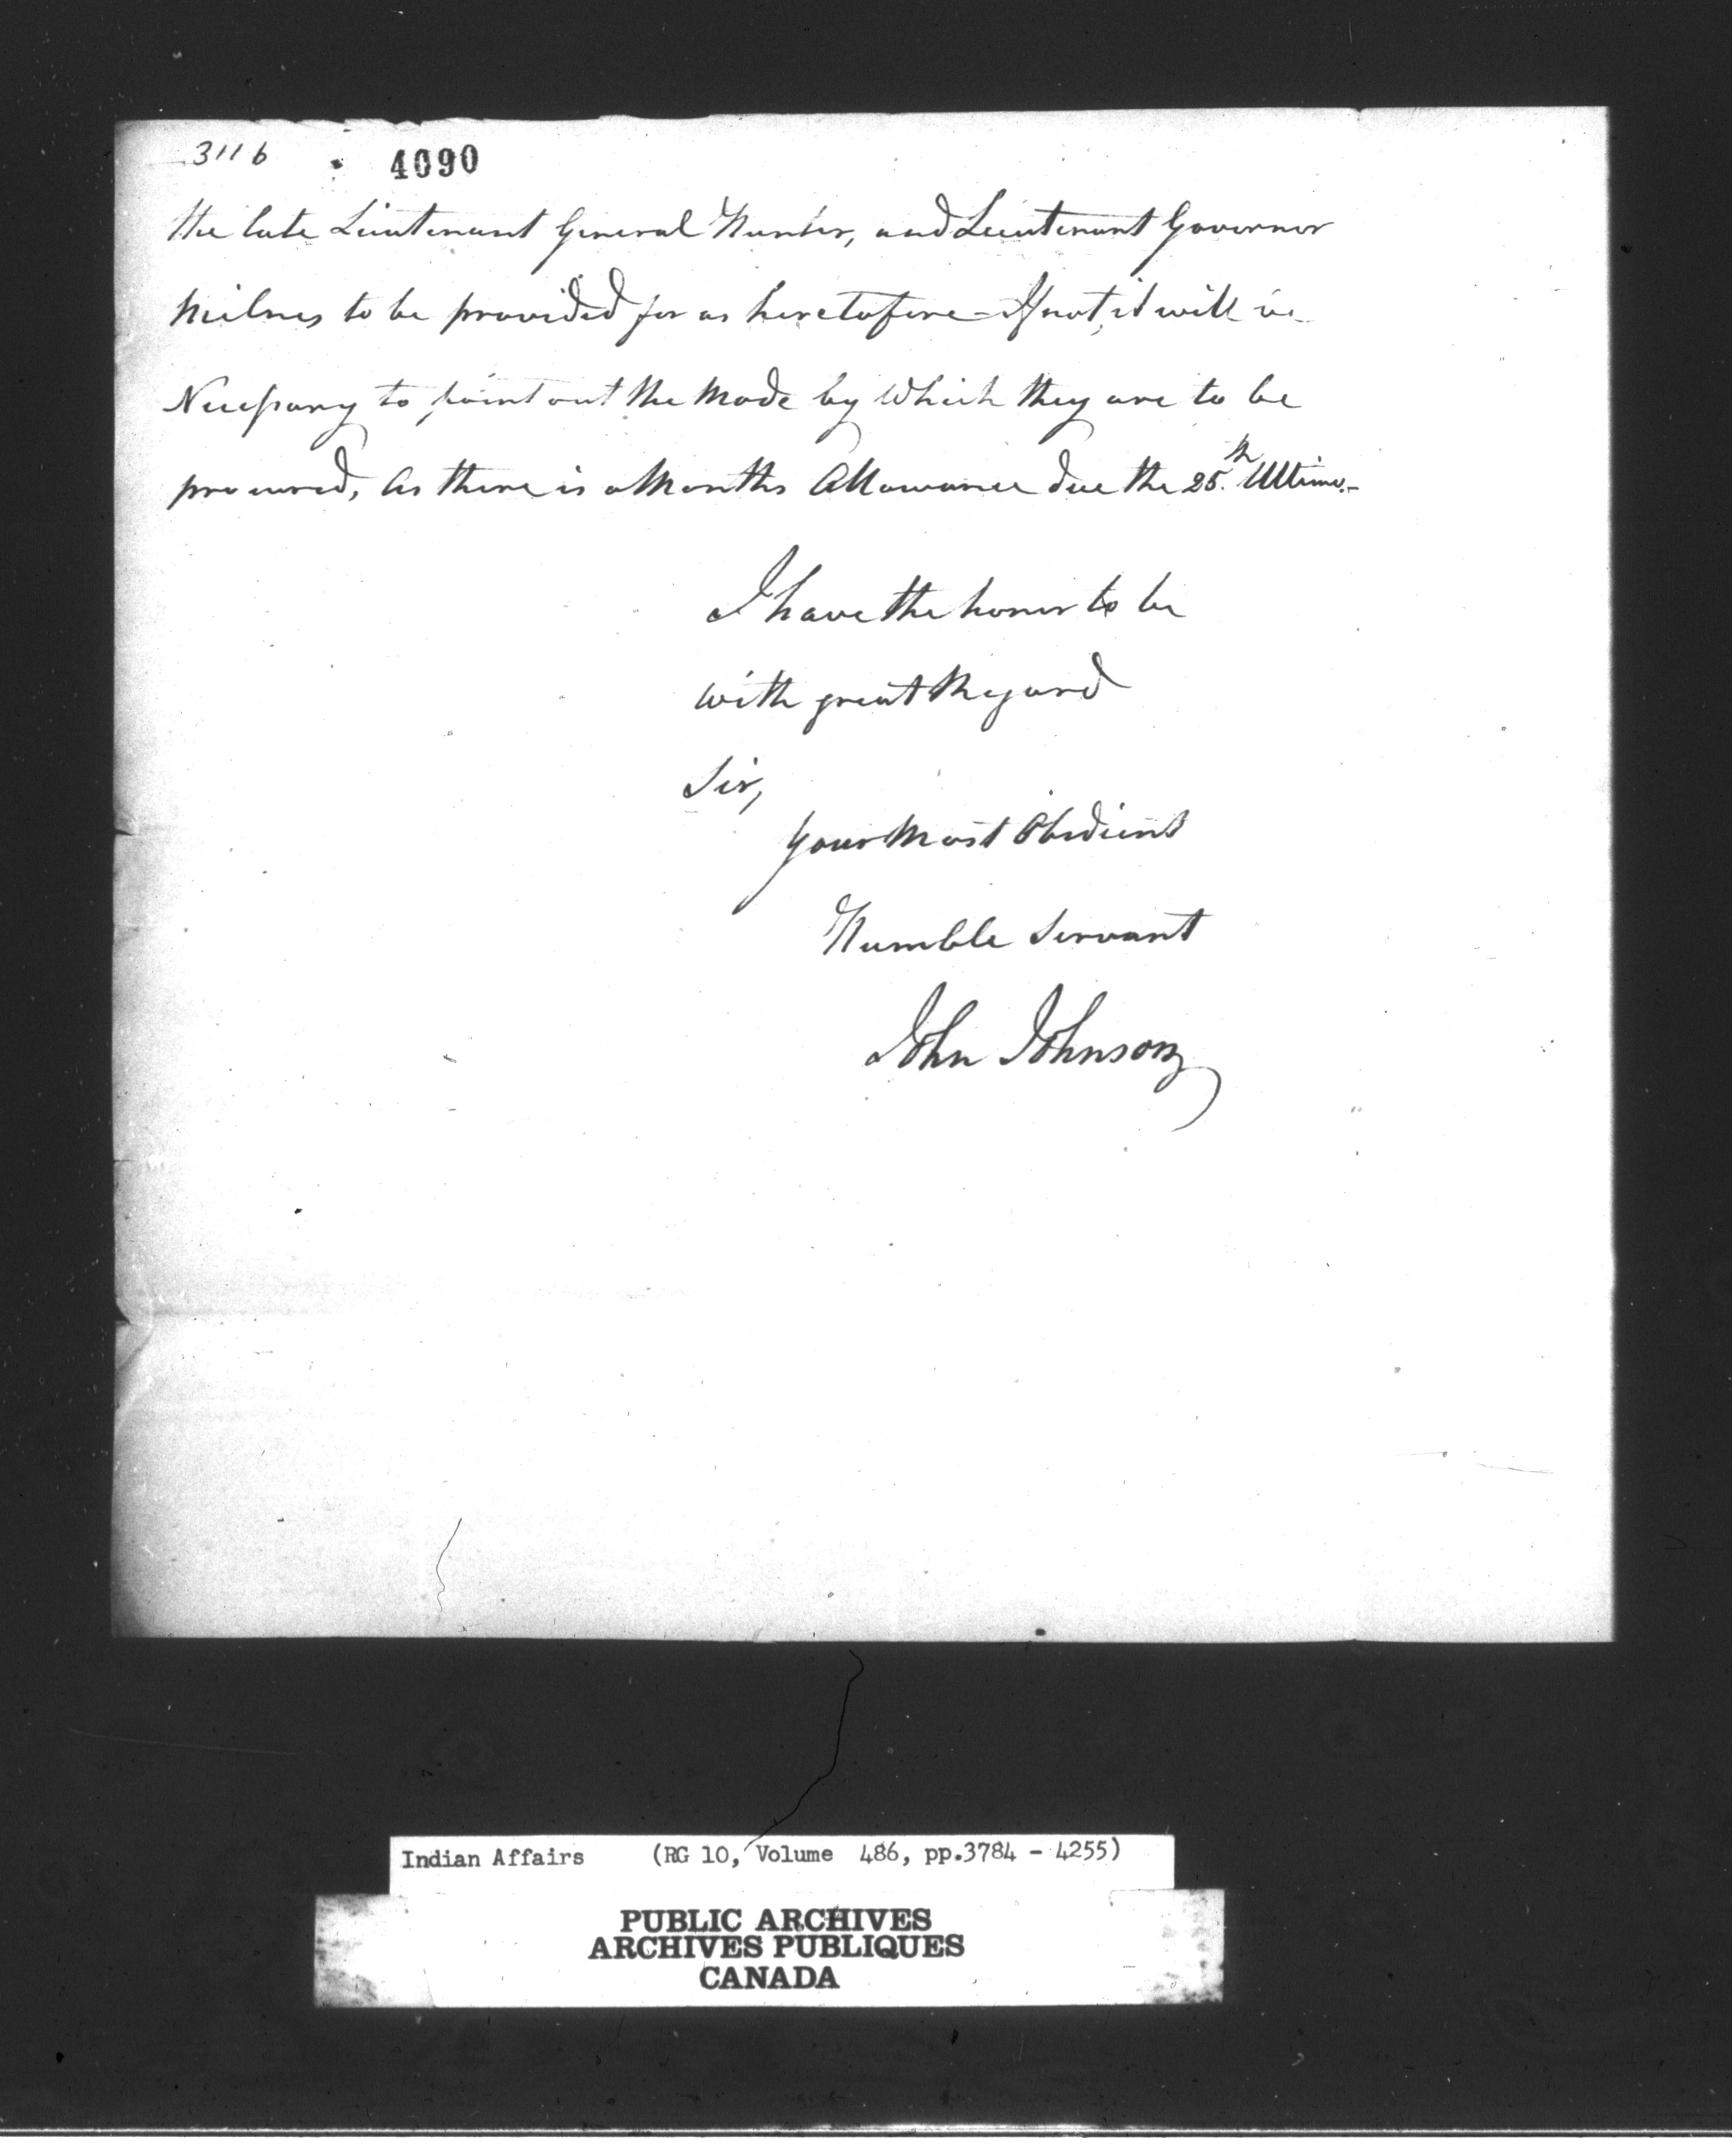 3116 4090
the late Lieutenant General Hunter, and Lieutenant Governor
Milnes to be provided for as heretofore - If not, it will be
Necessary to point out the Mode by Which they are to be
procured, as there is a Months Allowance due the 25th Ultimo.-
I have the honor to be
with great Regard
Sir,
Your Most Obedient
Humble Servant
John Johnson
Indian Affairs (RG 10, Volume 486, pp.3784 - 4255)
PUBLIC ARCHIVES
ARCHIVES PUBLIQUES
CANADA